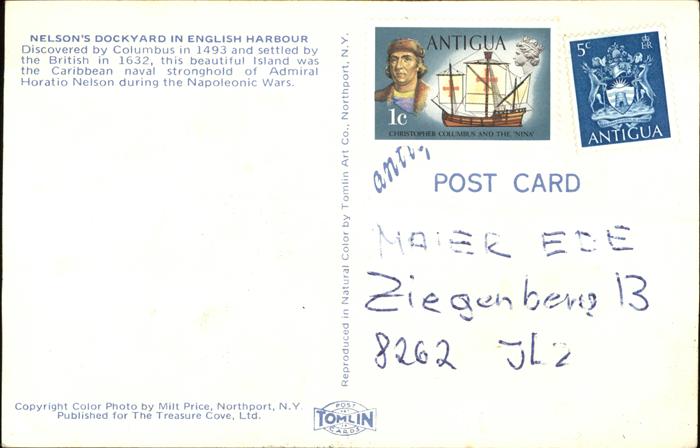 NELSON'S DOCKYARD IN ENGLISH HARBOUR
Discovered by Columbus in 1493 and settled by
the British in 1632, this beautiful Island was
the Caribbean naval stronghold of Admiral
Horatio Nelson during the Napoleonic Wars.
Copyright Color Photo by Milt Price, Northport, N.Y.
Published for The Treasure Cove, Ltd.
Reproduced in Natural Color by Tomlin Art Co., Northport, N.Y.
POST
TOMLIN
CARDS
ANTIGUA
1c
CHRISTOPHER COLUMBUS AND THE 'NINA'
5c
E R
ANTIGUA
POST CARD
MAIER EDE
Ziegenberg 13
8262